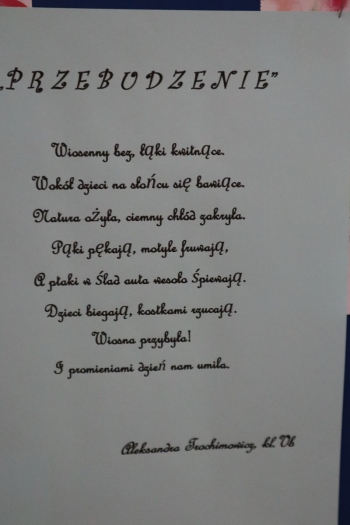 „PRZEBUDZENIE”
Wiosenny bez, łąki kwitnące.
Wokół dzieci na słońcu się bawiące.
Natura ożyła, ciemny chłód zakryła.
Pąki pękają, motyle fruwają,
A ptaki w ślad auta wesoło śpiewają.
Dzieci biegają, kostkami rzucają.
Wiosna przybyła!
I promieniami dzień nam umila.
Aleksandra Trochimowicz, kl. Vb